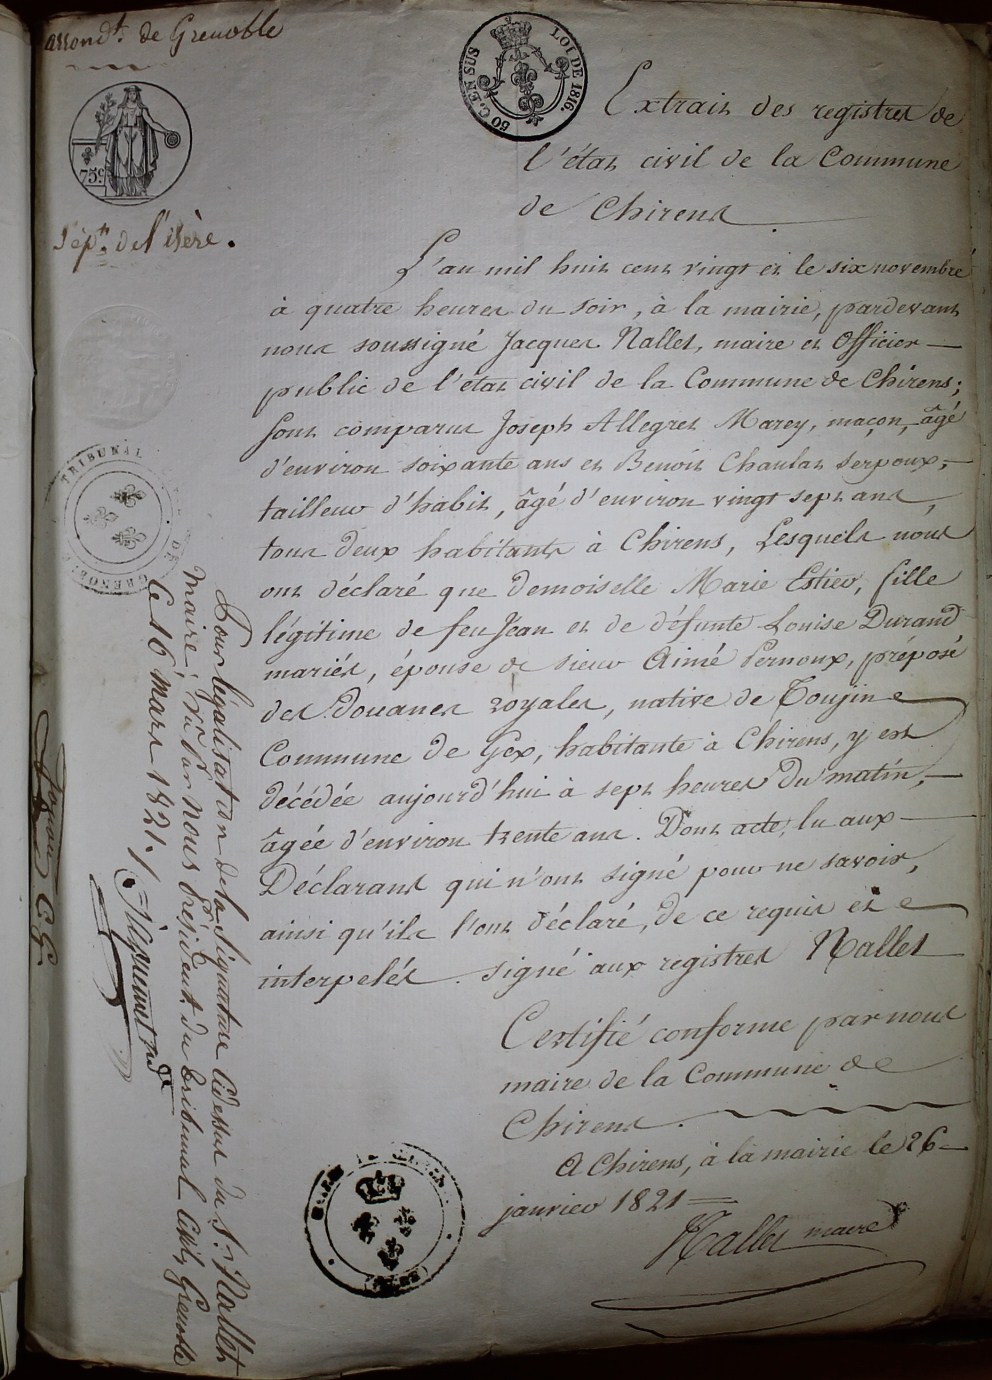 arrond.t de Grenoble
50 C. EN SUS
LOI DE 1816.
75c
Dép.t de l'isère.
Extrait des registres de
l'état civil de la Commune
de Chirens
L'an mil huit cent vingt et le six novembre
à quatre heures du soir, à la mairie, pardevant
nous soussigné Jacques Nallet, maire et Officier
public de l'état civil de la Commune de Chirens;
sont comparus Joseph Allegret Marey, maçon, âgé
d'environ soixante ans et Benoit Chaulat Serpoux,
tailleur d'habit, âgé d'environ vingt sept ans,
tous deux habitants à Chirens, Lesquels nous
ont déclaré que demoiselle Marie Estier, fille
légitime de feu Jean et de défunte Louise Durand
mariés, épouse de sieur Aimé Pernoux, préposé
des Douanes royales, native de Toujin
Commune de Gex, habitante à Chirens, y est
décédée aujourd'hui à sept heures du matin,
âgée d'environ trente ans. Dont acte, lu aux
Déclarants qui n'ont signé pour ne savoir,
ainsi qu'ils l'ont déclaré, de ce requis et
interpelés. signé aux registres Nallet
Certifié conforme par nous
maire de la Commune de
Chirens.
A Chirens, à la mairie le 26
janvier 1821
Nallet maire
TRIBUNAL DE GRENOBLE
Pour légalisation de la signature Cidessus du S.r Nallet
maire; par Nous Président du tribunal Civil, Grenoble
Ce 16 mars 1821.